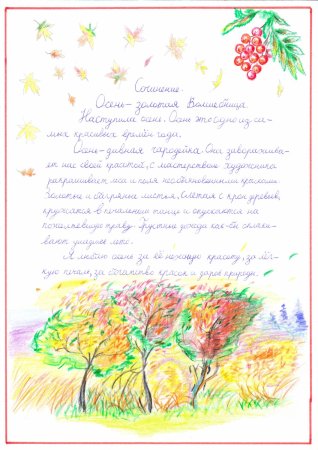 Сочинение.
Осень- золотая Волшебница.
Наступила осень. Осень это одно из са-
мых красивых времён года.
Осень- дивная чародейка. Она завораживa-
ет нас своей красотой, с мастерством художника
раскрашивает леса и поля необыкновенными красками.
Золотые и багряные листья, слетая с крон деревьев,
кружатся в печальном танце и опускаются на
пожелтевшую траву. Грустные дожди как-бы оплаки-
вают ушедшее лето.
Я люблю осень за её нежную красоту, за лёг-
кую печаль, за богатство красок и даров природы.